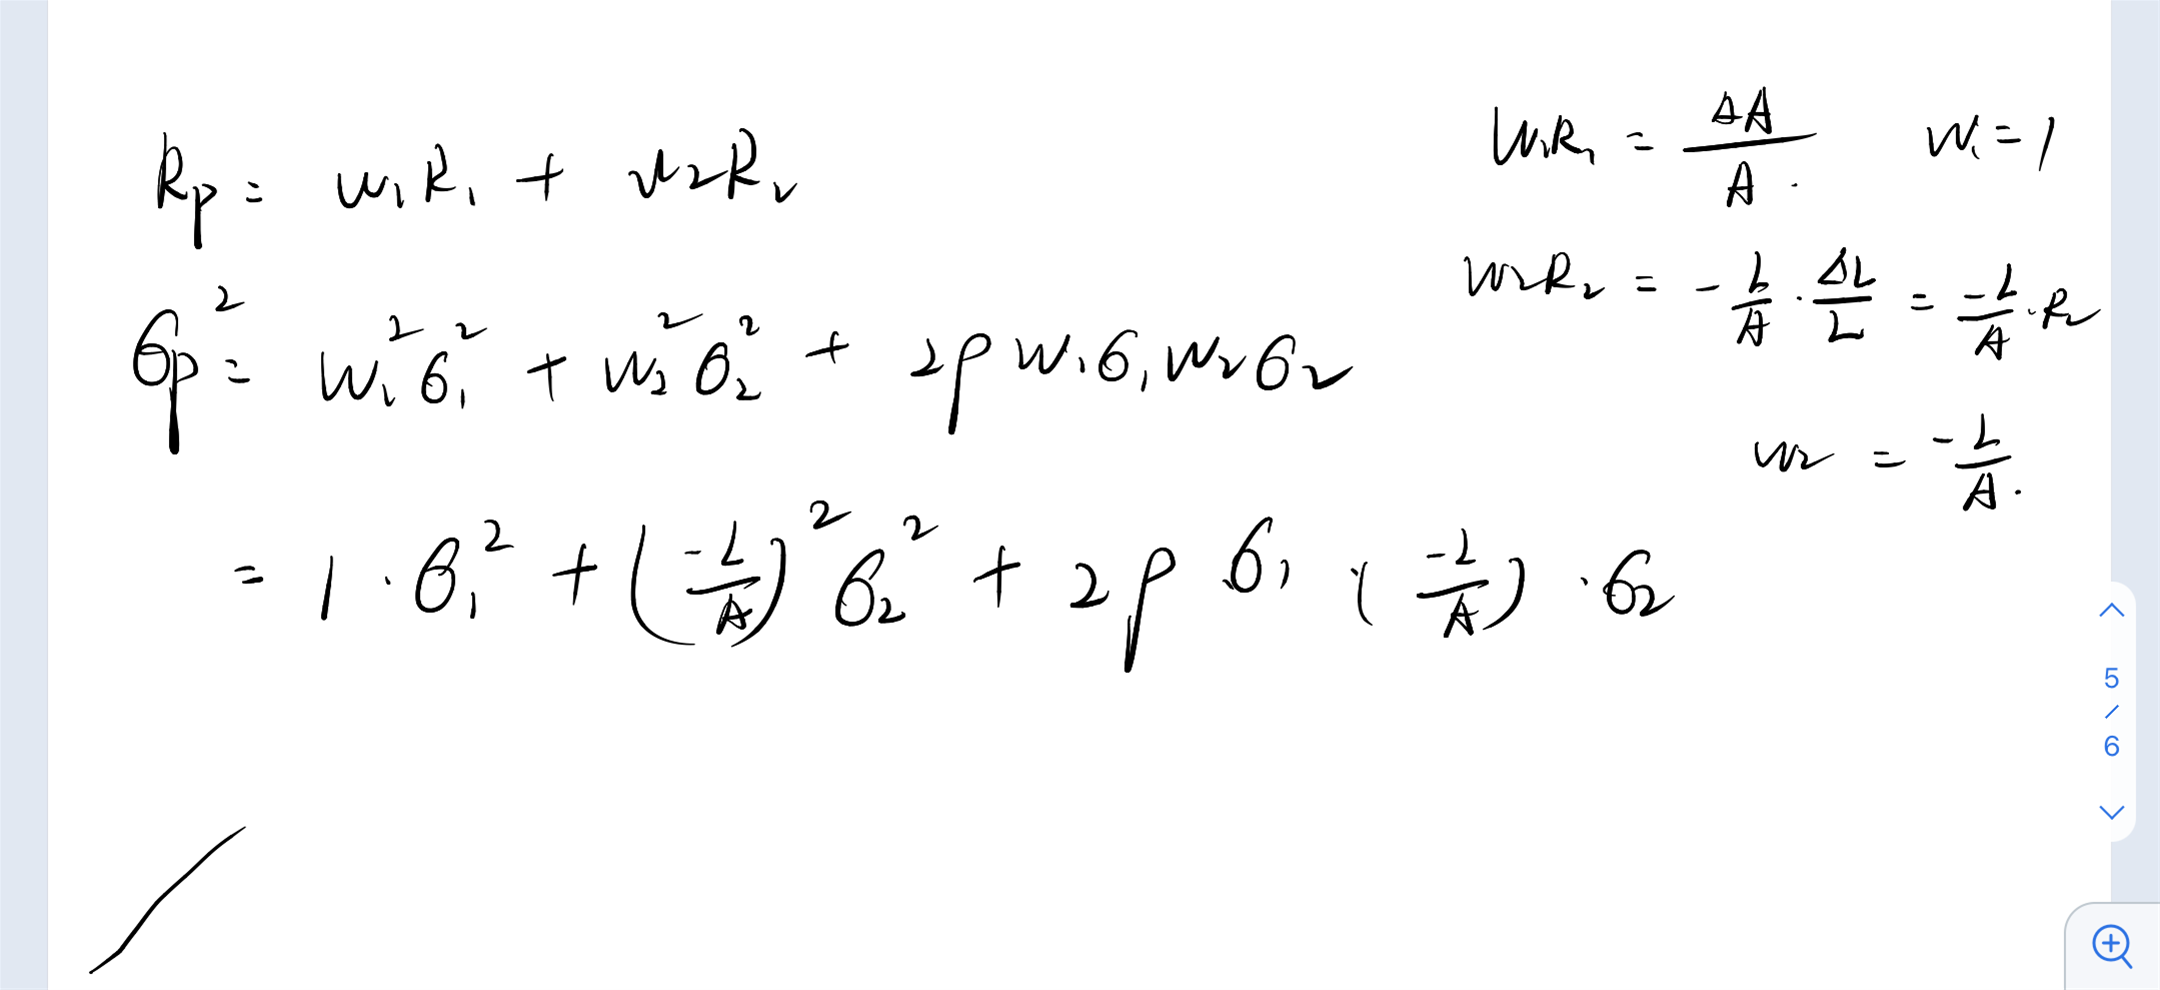 Rp = w₁R₁ + w₂R₂
σp² = w₁²σ₁² + w₂²σ₂² + 2ρw₁σ₁w₂σ₂
= 1·σ₁² + (-L/A)²σ₂² + 2ρσ₁·(-L/A)·σ₂
w₁R₁ = ΔA/A. w₁ = 1
w₂R₂ = -L/A·ΔL/L = -L/A·R₂
w₂ = -L/A.
5
/
6